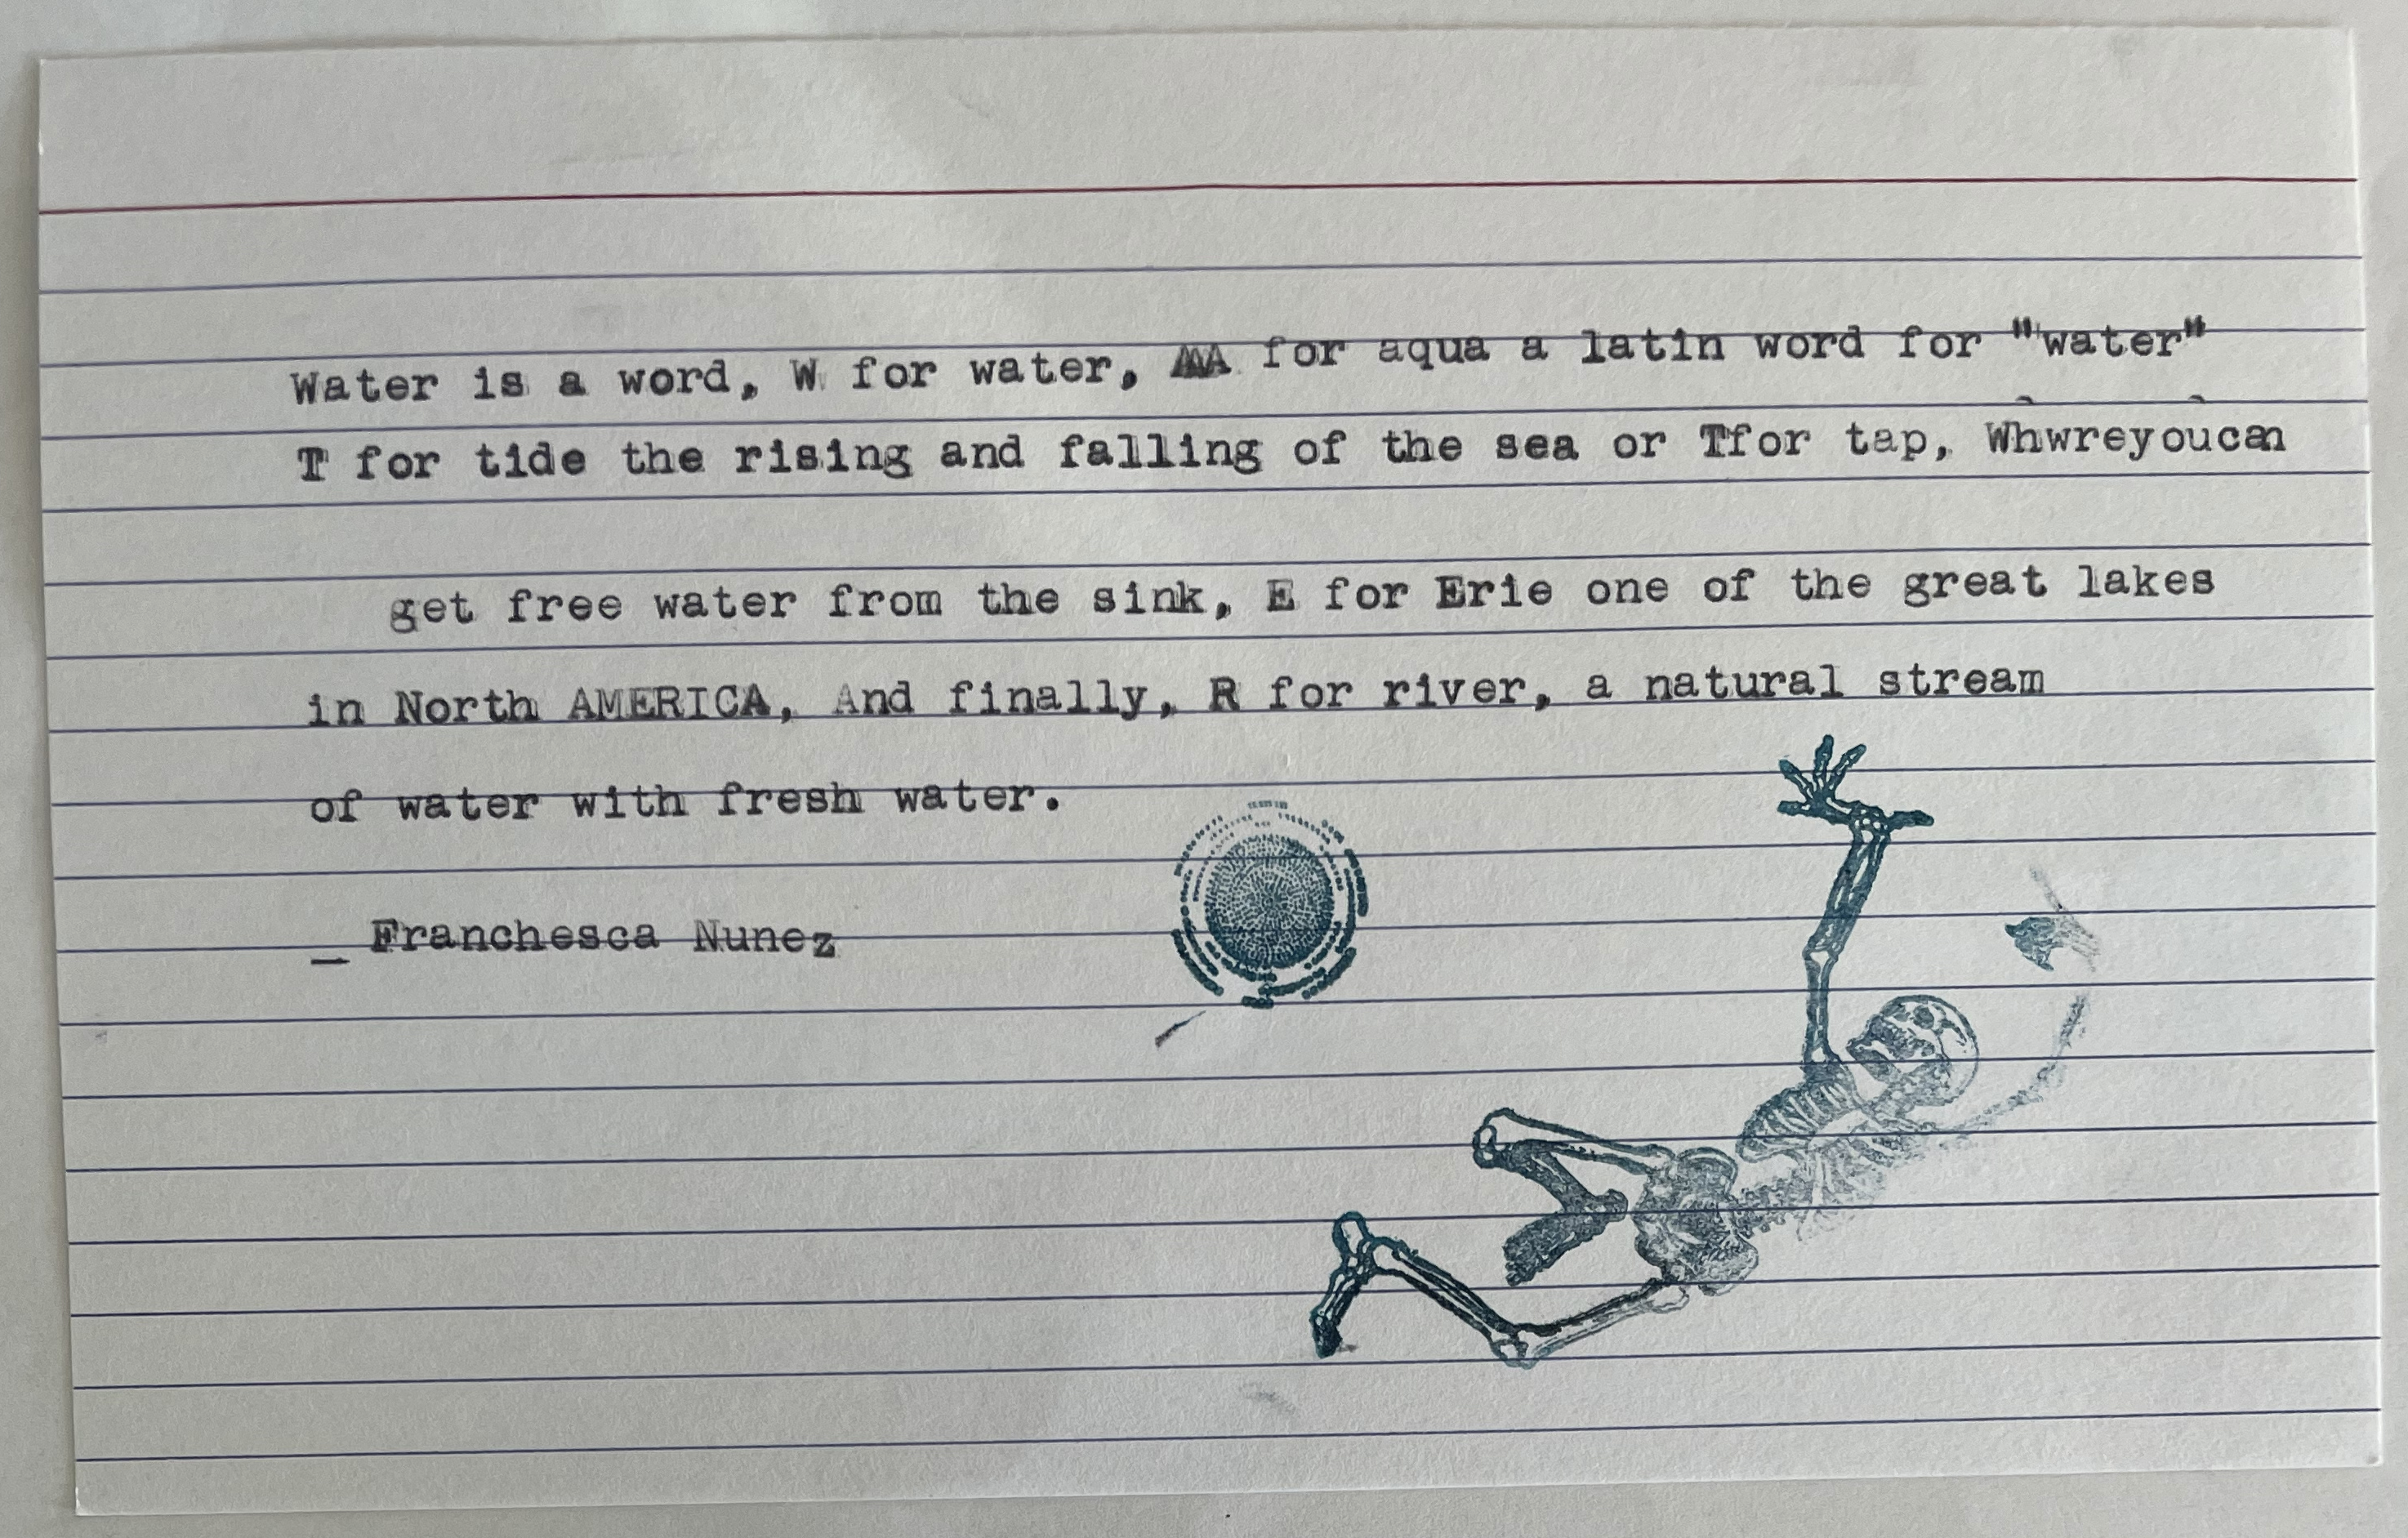 Water is a word, W for water, AA for aqua a latin word for "water"
T for tide the rising and falling of the sea or Tfor tap, Whwreyoucan
get free water from the sink, E for Erie one of the great lakes
in North AMERICA, And finally, R for river, a natural stream
of water with fresh water.
_ Franchesca Nunez